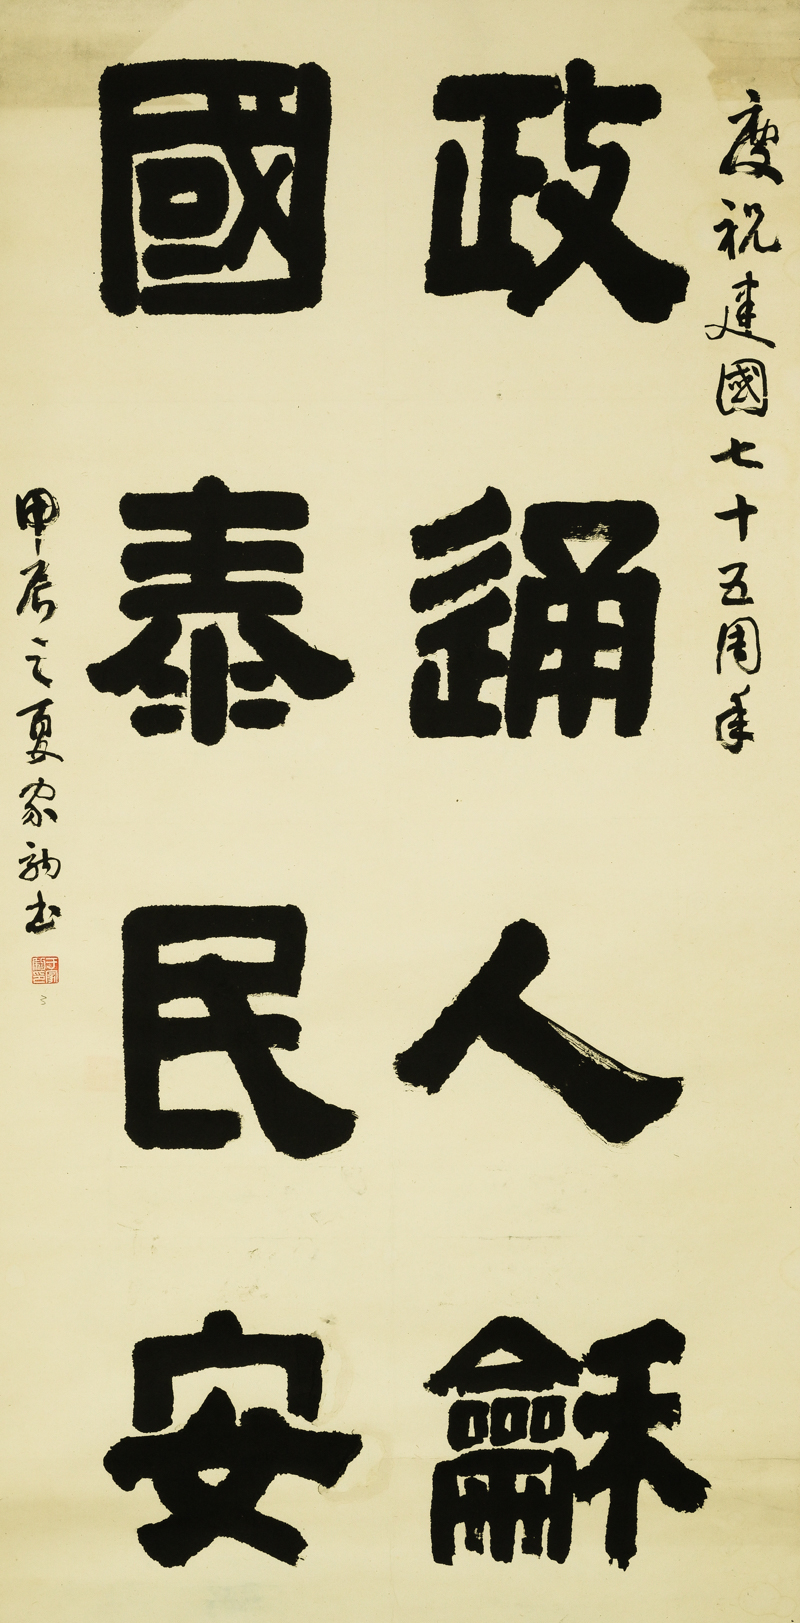 慶祝建國七十五周年
政通人龢
國泰民安
甲辰之夏家驹书